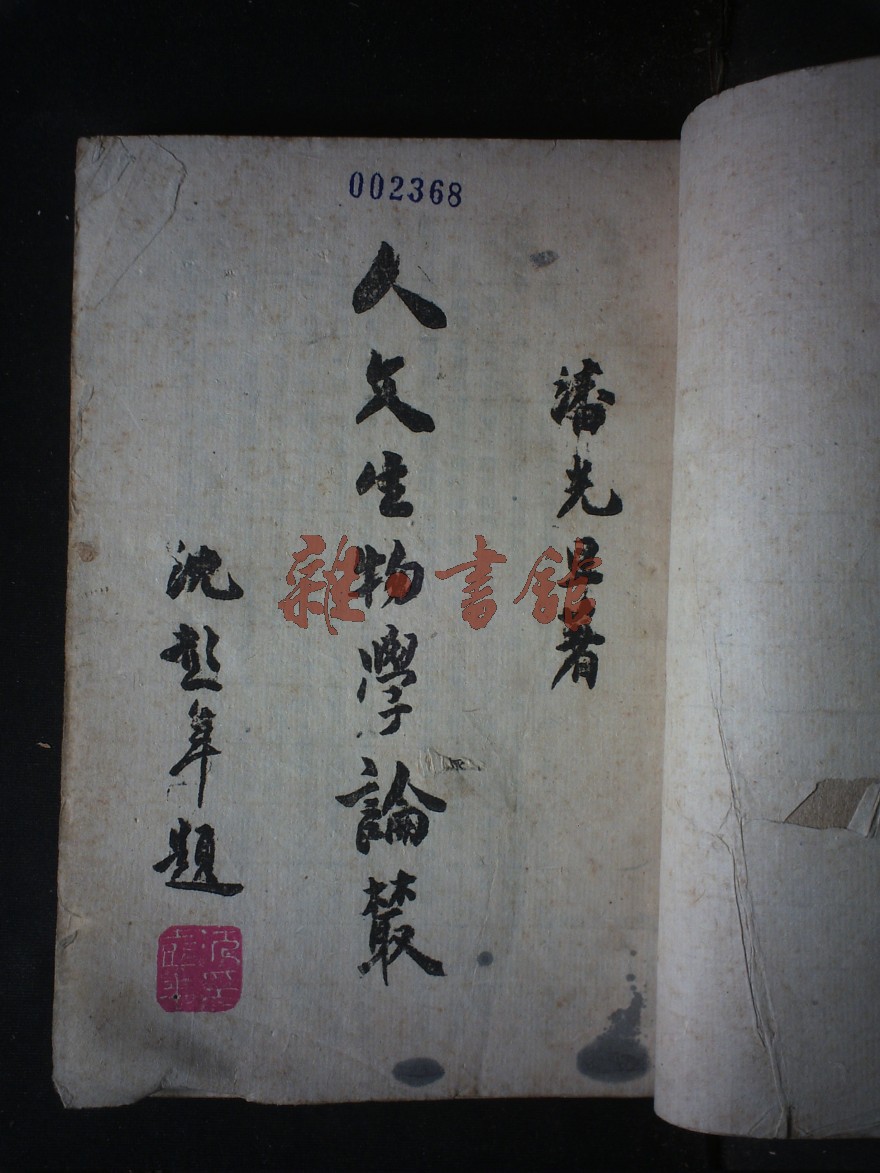 002368
潘光旦著
人文生物學論叢
沈彭年題
雜·書館